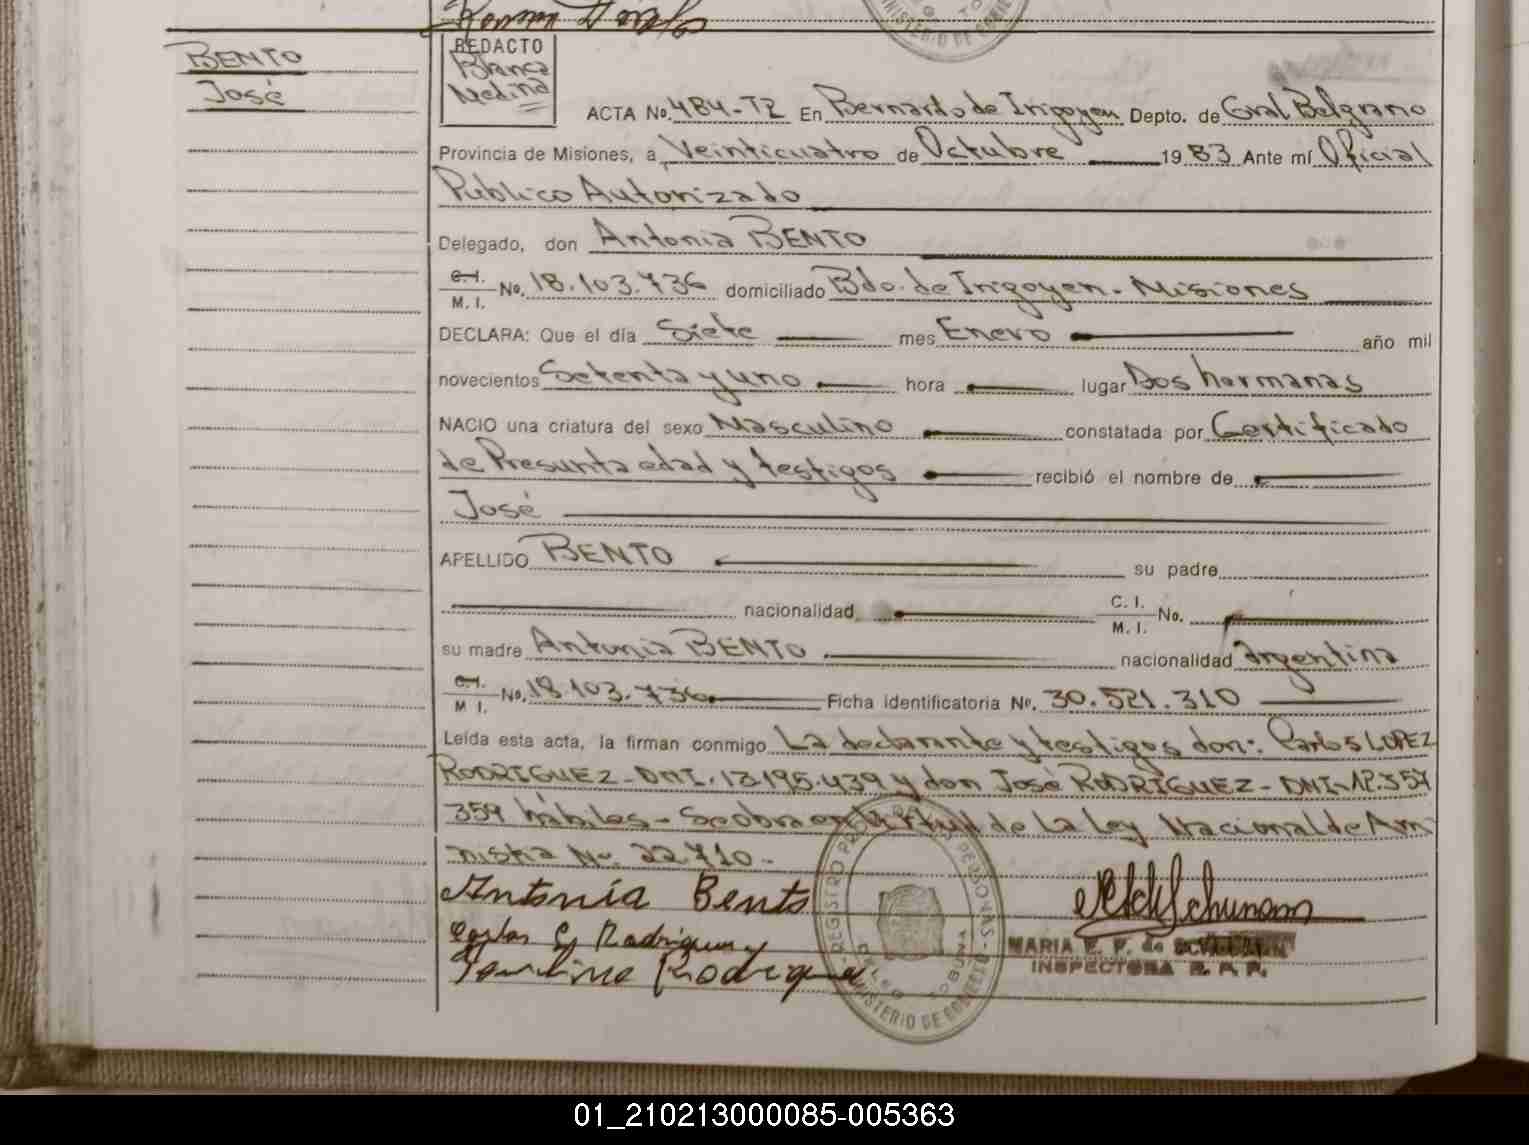 BENTO
José
REDACTO
Blanca
Medina
ACTA No. 484-T2 En Bernardo de Irigoyen Depto. de Gral Belgrano
Provincia de Misiones, a Veinticuatro de Octubre 1983 Ante mí Oficial
Publico Autorizado
Delegado, don Antonia BENTO
C.I. M. I. No. 18.103.736 domiciliado Bdo. de Irigoyen - Misiones
DECLARA: Que el día Siete mes Enero año mil
novecientos Setenta y uno hora lugar Dos hermanas
NACIO una criatura del sexo Masculino constatada por Certificado
de Presunta edad y testigos recibió el nombre de
José
APELLIDO BENTO su padre
nacionalidad C. I. M. I. No.
su madre Antonia BENTO nacionalidad argentina
C.I. M I. No. 18.103.736 Ficha identificatoria No. 30.521.310
Leída esta acta, la firman conmigo La declarante y testigos don: Carlos LOPEZ
RODRIGUEZ - DNI. 13.195.439 y don José RODRIGUEZ - DNI-12.357
359 hábiles - Se obra en virtud de La Ley Nacional de Am
nistia No. 22.710.-
Antonia Bento
MARIA E. F. de
INSPECTORA R. P. P.
REGISTRO PERSONAS
MINISTERIO DE GOBIERNO
01_210213000085-005363